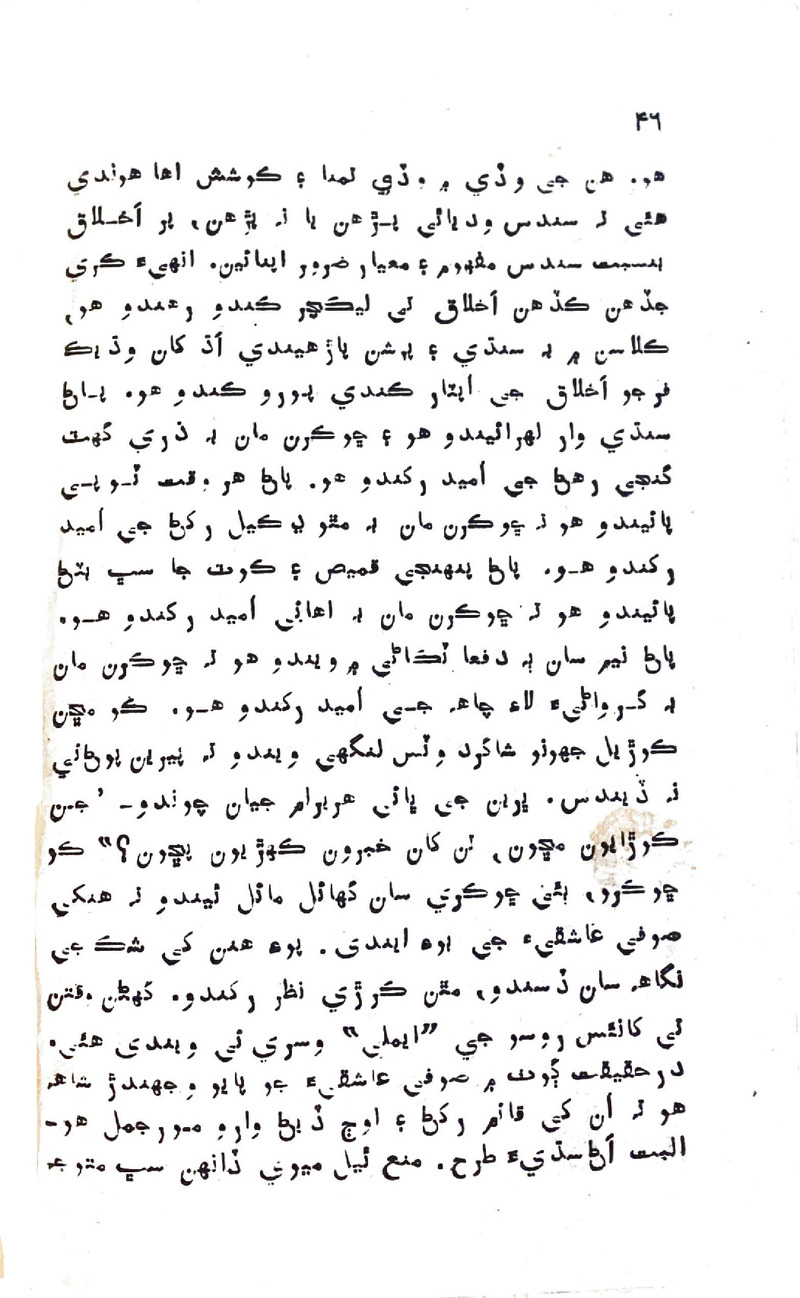 ۴٦
هو. هن جي وڏي ۾ وڏي تمنا ۽ ڪوشش اها هوندي
هئي تہ سندس وديائي پـڙهن يا نہ پڙهن، پر اَخـلاق
بنسبت سندس مفهوم ۽ معيار ضرور اپنائين. انهيءَ ڪري
جڏهن ڪڏهن اَخلاق تي ليڪچر ڪندو رهندو هو،
ڪلاسن ۾ بہ سنڌي ۽ پرشن پاڙهيندي اڌ کان وڌيڪ
فرجو اَخلاق جي اُپٽار ڪندي پـورو ڪندو هو. پـاڻ
سنڌي وار لهرائيندو هو ۽ ڇوڪرن مان بہ ذري گهٽ
گنجي رهڻ جي اُميد رکندو هو. پاڻ هر وقت ٽـوپـي
پائيندو هو تہ ڇوڪرن مان بہ مٿو ڍڪيل رکڻ جي اُميد
رکندو هـو. پاڻ پنهنجي قميص ۽ ڪوٽ جا سڀ بٽڻ
پائيندو هو تہ ڇوڪرن مان بہ اهائي اُميد رکندو هـو.
پاڻ نيم سان ٻہ دفعا ٽڪاڻي ۾ ويندو هو تہ ڇوڪرن مان
بہ گـرواڻيءَ لاءِ چاهہ جـي اُميد رکندو هـو. ڪو مڇن
ڪوڙيل جهونو شاگرد وٽس لنگهي ويندو تہ پيرين پوڻائي
نہ ڏيندس. پرين جي پاٽي هربرام جيان چوندو- ’جـن
ڪوڙايون مڇون، تن کان خبرون ڪهڙيون پڇون؟“ ڪو
ڇوڪرو، ٻئي ڇوڪري سان گهائل مائل ٿيندو تہ هنکي
صوفي عاشقيءَ جي بوءِ ايندي. پوءِ هنن کي شڪ جي
نگاهہ سان ڏسندو، مٿن ڪرڙي نظر رکندو. گهڻن وقتن
تي کانئس روسو جي ”ايملي“ وسري ٿي ويندي هئي.
درحقيقت ڳوٺ ۾ صوفي عاشقيءَ جو پايو وجهندڙ شاهہ
هو تہ اُن کي قائم رکڻ ۽ اوج ڏيڻ وارو مـورجمل هو-
البت اَڻ سڌيءَ طرح. منع ٿيل ميوي ڏانهن سڀ متوجہ